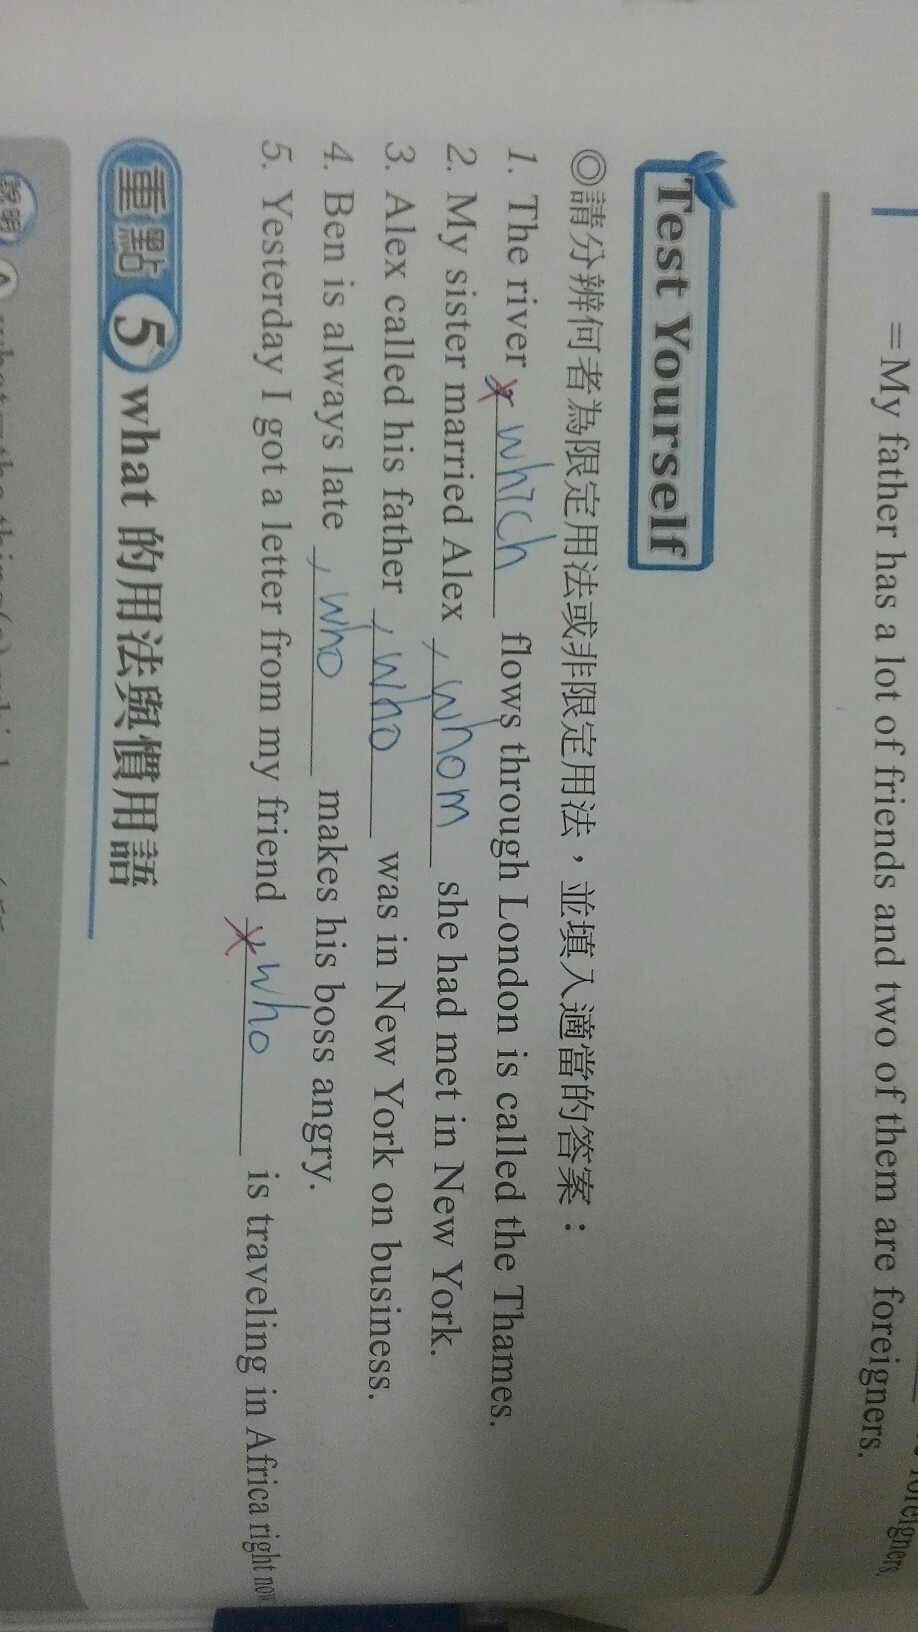 foreigners.
=My father has a lot of friends and two of them are foreigners.
Test Yourself
◎請分辨何者為限定用法或非限定用法，並填入適當的答案：
1. The river which flows through London is called the Thames.
2. My sister married Alex , whom she had met in New York.
3. Alex called his father , who was in New York on business.
4. Ben is always late , who makes his boss angry.
5. Yesterday I got a letter from my friend who is traveling in Africa right now
重點 5 what 的用法與慣用語
說明 A